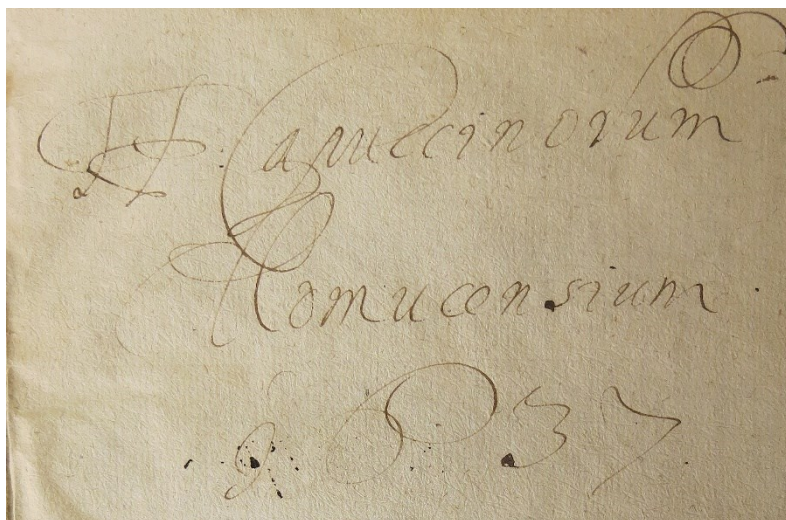 FF. Capuccinorum
Olomucensium
1637